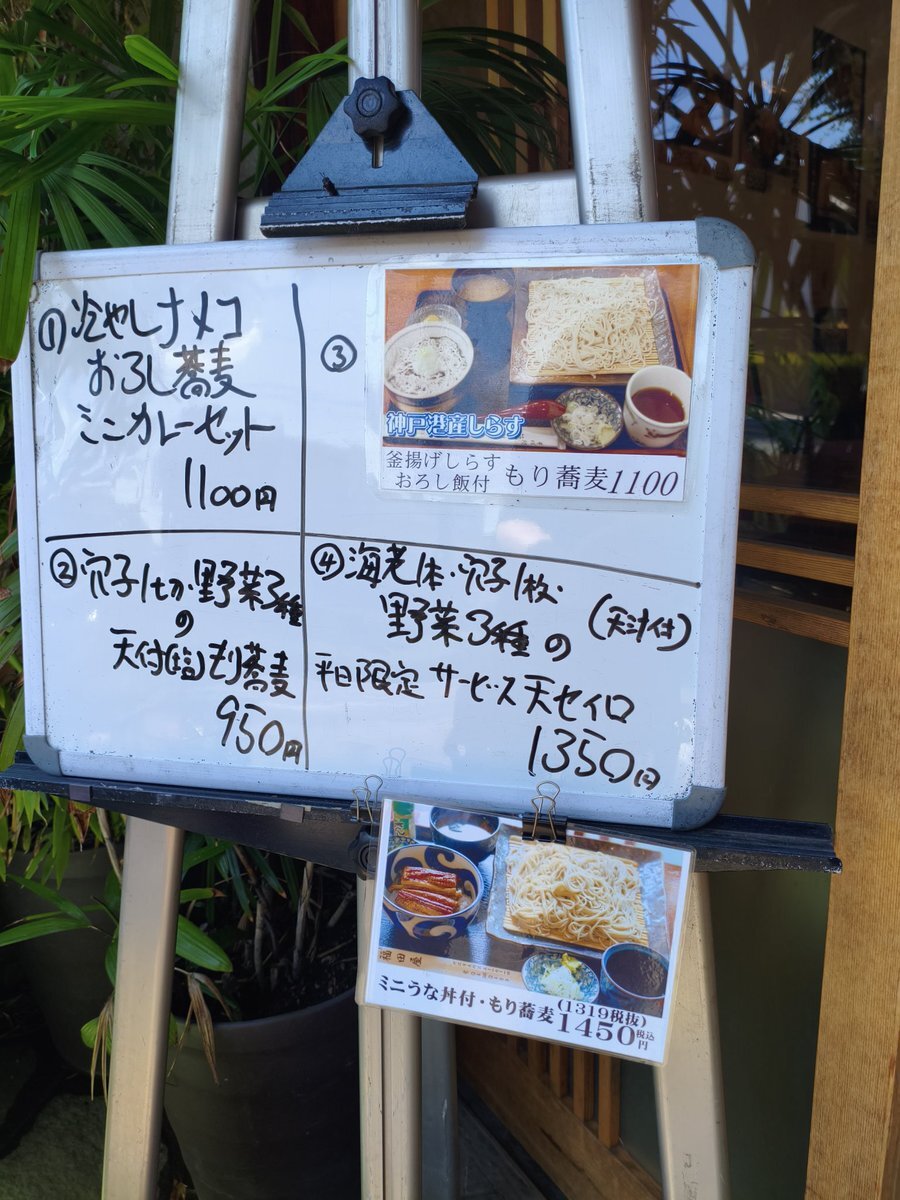 ① 冷やしナメコ
おろし蕎麦
ミニカレーセット
1100円
② 穴子1切・野菜3種
の
天付(塩)もり蕎麦
950円
③
神戸港産しらす
釜揚げしらす
おろし飯付
もり蕎麦1100
④ 海老1本・穴子1枚・
野菜3種の
(天汁付)
平日限定 サービス天セイロ
1350円
福田屋
ミニうな丼付・もり蕎麦
(1319税抜)
1450税込円